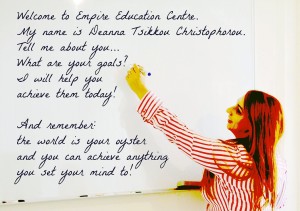 Welcome to Empire Education Centre.
My name is Deanna Tsikkou Christophorou.
Tell me about you...
What are your goals?
I will help you
achieve them today!
And remember:
the world is your oyster
and you can achieve anything
you set your mind to!